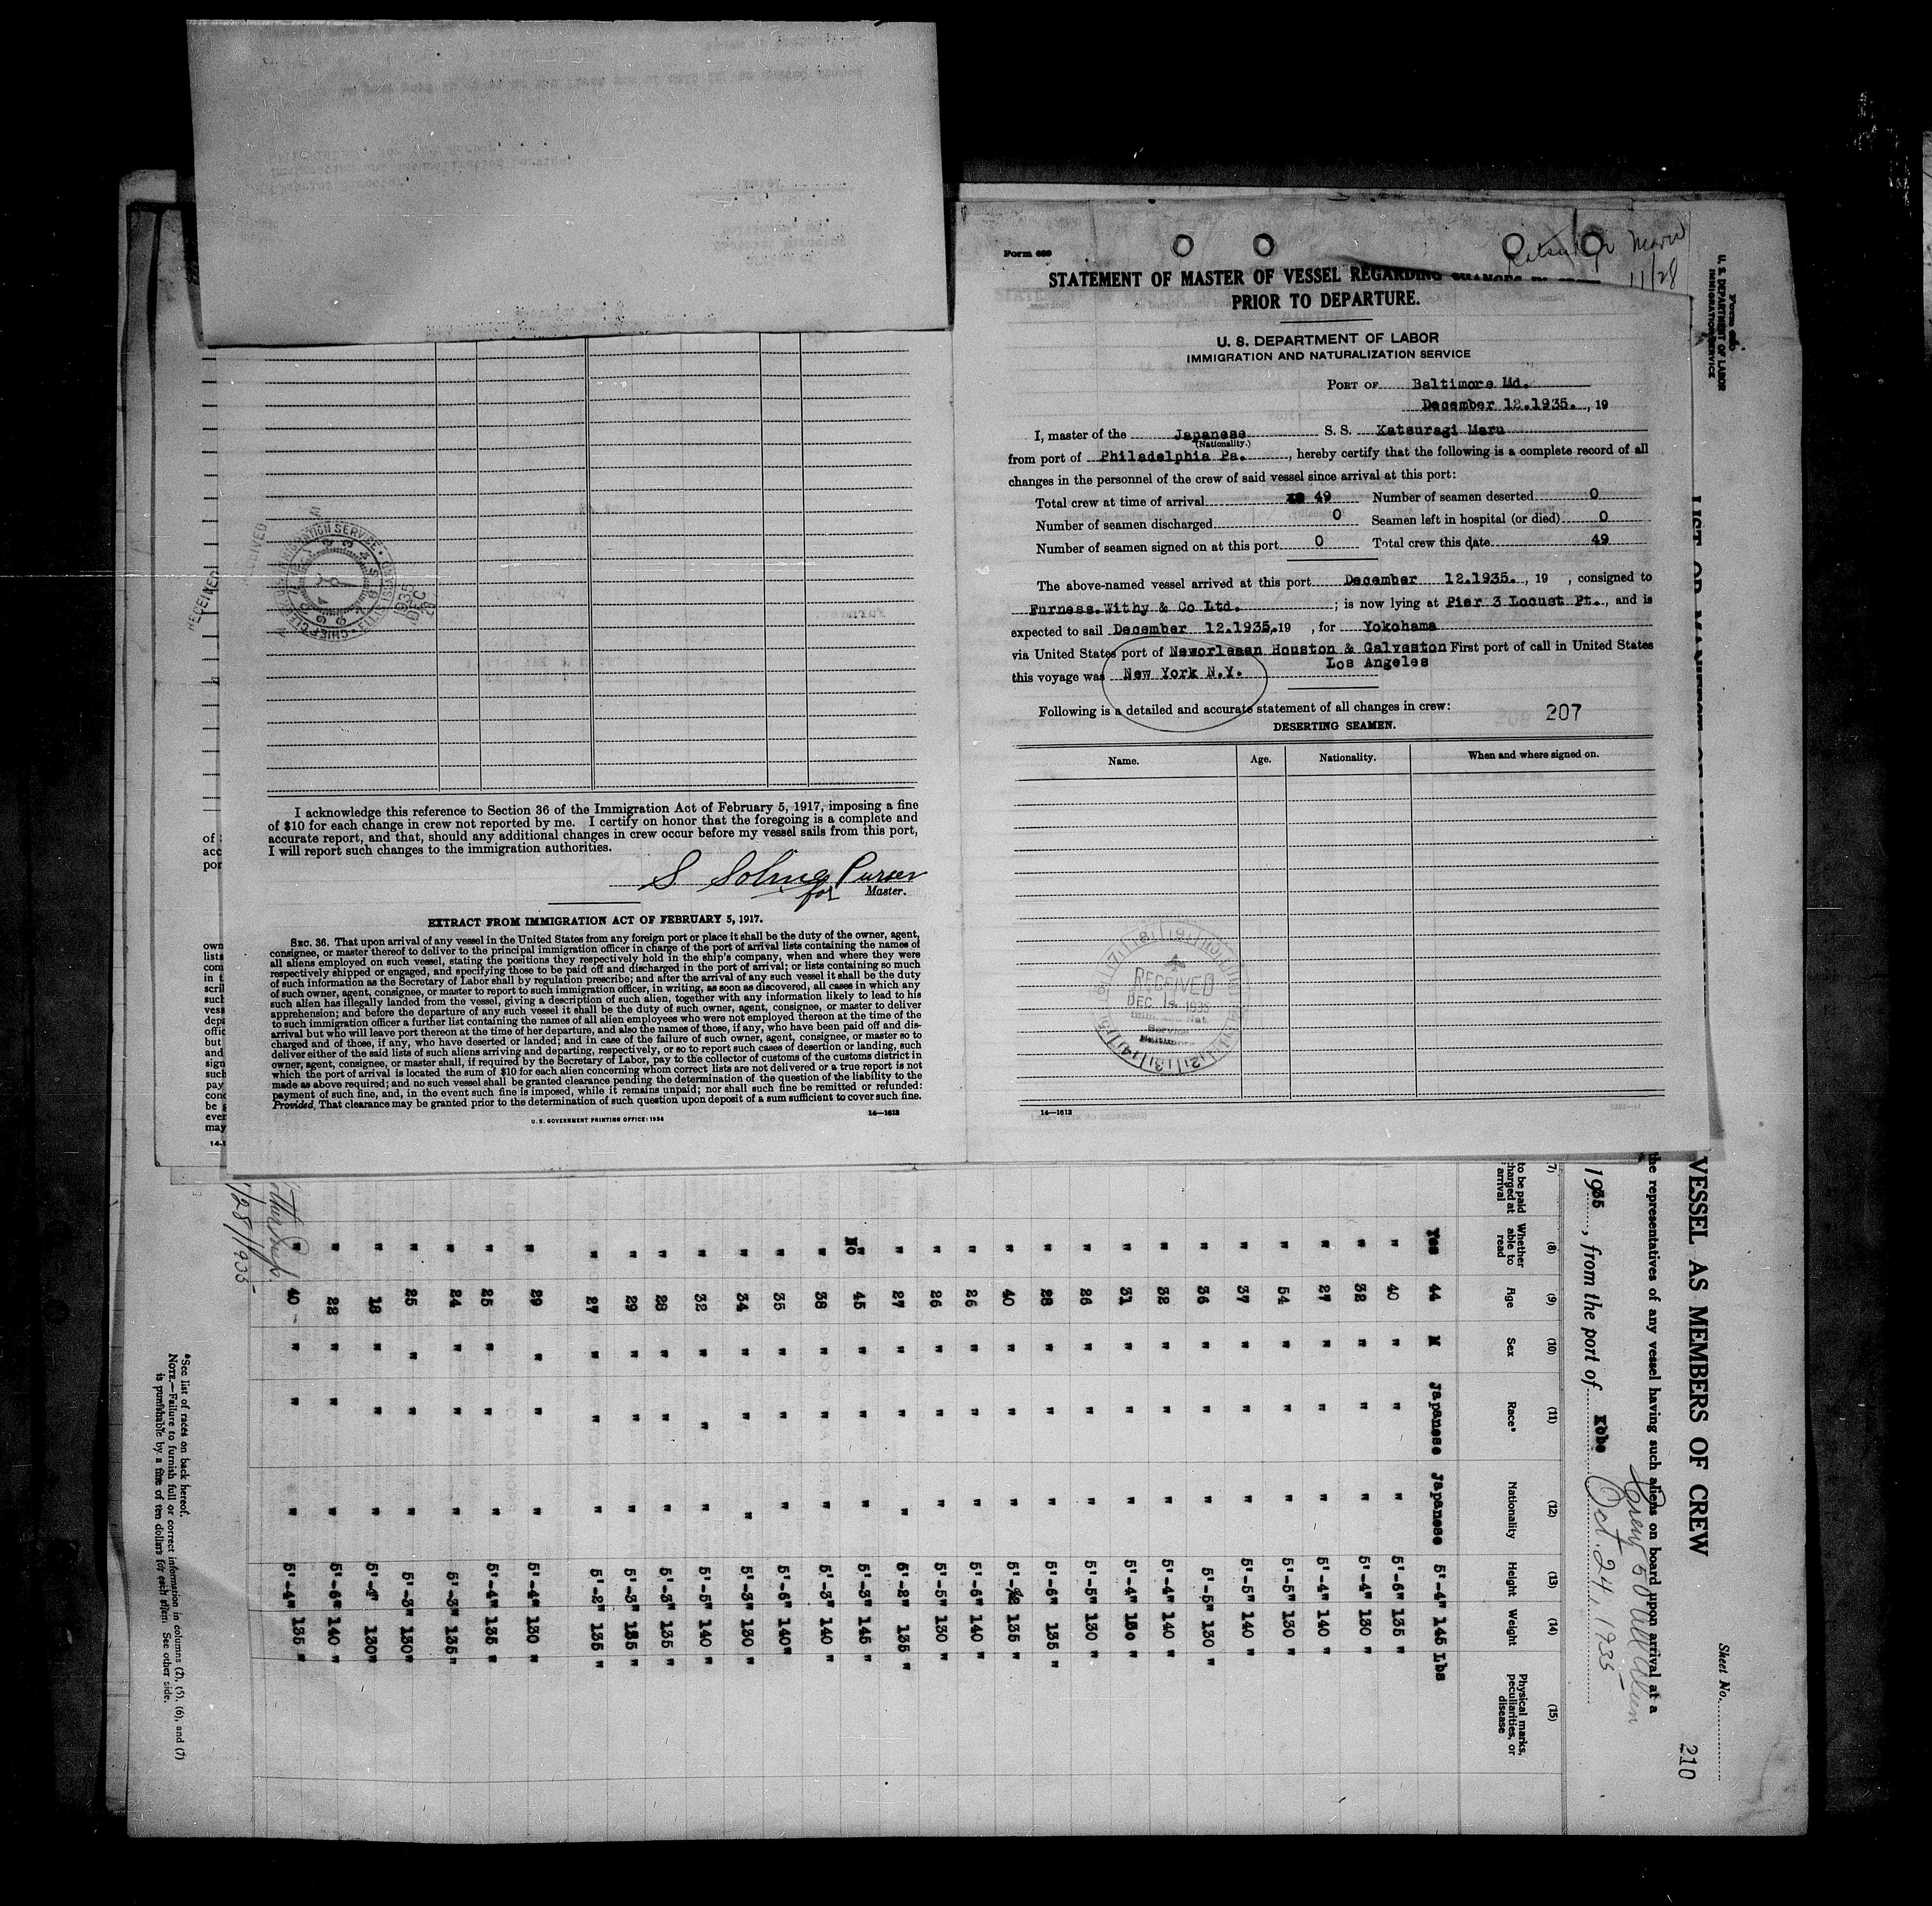 Form 689
Maru
11/28
STATEMENT OF MASTER OF VESSEL REGARDING CHANGES IN
PRIOR TO DEPARTURE.
U. S. DEPARTMENT OF LABOR
IMMIGRATION AND NATURALIZATION SERVICE
PORT OF Baltimore Md.
December 12.1935. , 19
I, master of the Japanese S. S. Katsuragi Maru
(Nationality.)
from port of Philadelphia Pa. , hereby certify that the following is a complete record of all
changes in the personnel of the crew of said vessel since arrival at this port:
Total crew at time of arrival 49 Number of seamen deserted 0
Number of seamen discharged 0 Seamen left in hospital (or died) 0
Number of seamen signed on at this port 0 Total crew this date 49
The above-named vessel arrived at this port December 12.1935. , 19 , consigned to
Furness.Withy & Co Ltd. ; is now lying at Pier 3 Locust Pt. , and is
expected to sail December 12.1935.,19 , for Yokohama
via United States port of Neworleasn Houston & Galveston First port of call in United States
Los Angeles
this voyage was New York N.Y.
Following is a detailed and accurate statement of all changes in crew:
207
DESERTING SEAMEN.
Name. Age. Nationality. When and where signed on.
RECEIVED
DEC 14 1935
Service
14—1613
RECEIVED
1935 DEC
I acknowledge this reference to Section 36 of the Immigration Act of February 5, 1917, imposing a fine
of $10 for each change in crew not reported by me. I certify on honor that the foregoing is a complete and
accurate report, and that, should any additional changes in crew occur before my vessel sails from this port,
I will report such changes to the immigration authorities.
Purser
for Master.
EXTRACT FROM IMMIGRATION ACT OF FEBRUARY 5, 1917.
SEC. 36. That upon arrival of any vessel in the United States from any foreign port or place it shall be the duty of the owner, agent,
consignee, or master thereof to deliver to the principal immigration officer in charge of the port of arrival lists containing the names of
all aliens employed on such vessel, stating the positions they respectively hold in the ship's company, when and where they were
respectively shipped or engaged, and specifying those to be paid off and discharged in the port of arrival; or lists containing so much
of such information as the Secretary of Labor shall by regulation prescribe; and after the arrival of any such vessel it shall be the duty
of such owner, agent, consignee, or master to report to such immigration officer, in writing, as soon as discovered, all cases in which any
such alien has illegally landed from the vessel, giving a description of such alien, together with any information likely to lead to his
apprehension; and before the departure of any such vessel it shall be the duty of such owner, agent, consignee, or master to deliver
to such immigration officer a further list containing the names of all alien employees who were not employed thereon at the time of the
arrival but who will leave port thereon at the time of her departure, and also the names of those, if any, who have been paid off and dis-
charged and of those, if any, who have deserted or landed; and in case of the failure of such owner, agent, consignee, or master so to
deliver either of the said lists of such aliens arriving and departing, respectively, or so to report such cases of desertion or landing, such
owner, agent, consignee, or master shall, if required by the Secretary of Labor, pay to the collector of customs of the customs district in
which the port of arrival is located the sum of $10 for each alien concerning whom correct lists are not delivered or a true report is not
made as above required; and no such vessel shall be granted clearance pending the determination of the question of the liability to the
payment of such fine, and, in the event such fine is imposed, while it remains unpaid; nor shall such fine be remitted or refunded:
Provided, That clearance may be granted prior to the determination of such question upon deposit of a sum sufficient to cover such fine.
U. S. GOVERNMENT PRINTING OFFICE: 1934
14—1613
U. S. DEPARTMENT OF LABOR
IMMIGRATION SERVICE
Sheet No.
210
VESSEL AS MEMBERS OF CREW
the representatives of any vessel having such aliens on board upon arrival at a
1935 , from the port of Kobe Oct. 24, 1935
(7) (8) (9) (10) (11) (12) (13) (14) (15)
to be paid
charged at
arrival
Whether able to read
Age
Sex
Race*
Nationality
Height
Weight
Physical marks, peculiarities, or disease
Yes 44 M Japanese Japanese 5'-4" 145 Lbs
" 40 " " " 5'-6" 135 "
" 32 " " " 5'-4" 130 "
" 27 " " " 5'-4" 140 "
" 54 " " " 5'-5" 130 "
" 37 " " " 5'-5" 140 "
" 36 " " " 5'-5" 130 "
" 32 " " " 5'-4" 140 "
" 31 " " " 5'-4" 130 "
" 26 " " " 5'-5" 130 "
" 28 " " " 5'-6" 135 "
" 40 " " " 5'-2 135 "
" 26 " " " 5'-6" 140 "
" 26 " " " 5'-5" 130 "
" 27 " " " 5'-2" 135 "
No 45 " " " 5'-3" 145 "
" 38 " " " 5'-3" 140 "
" 35 " " " 5'-6" 140"
" 34 " " " 5'-3" 130 "
" 32 " " " 5'-5" 140 "
" 28 " " " 5'-3" 135 "
" 29 " " " 5'-3" 135 "
" 27 " " " 5'-2" 135 "
" 29 " " " 5'-4" 130 "
" 25 " " " 5'-4" 135 "
" 24 " " 5'-3" 135"
" 25 " " " 5'-3" 130"
" 18 " " " 5'-4" 130"
" 22 " " " 5'-6" 140 "
" 40 " " " 5'-4" 135 "
11/28/1935
*See list of races on back hereof.
NOTE.—Failure to furnish full or correct information in columns (2), (5), (6), and (7)
is punishable by a fine of ten dollars for each alien. See other side.